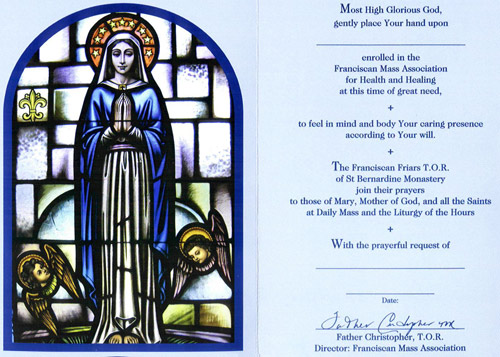 Most High Glorious God,
gently place Your hand upon
enrolled in the
Franciscan Mass Association
for Health and Healing
at this time of great need,
+
to feel in mind and body Your caring presence
according to Your will.
+
The Franciscan Friars T.O.R.
of St Bernardine Monastery
join their prayers
to those of Mary, Mother of God, and all the Saints
at Daily Mass and the Liturgy of the Hours
+
With the prayerful request of
Date:
Father Christopher
Father Christopher, T.O.R.
Director: Franciscan Mass Association